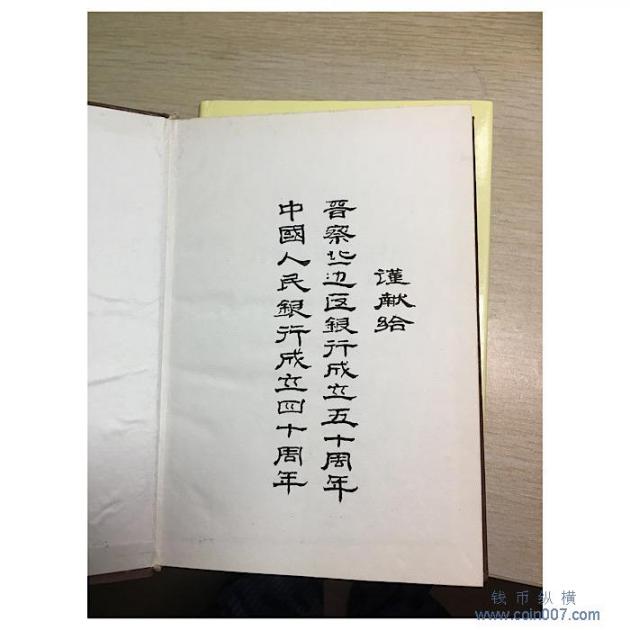 谨献给
晋察北边区银行成立五十周年
中國人民銀行成立四十周年
钱币纵横
www.coin007.com